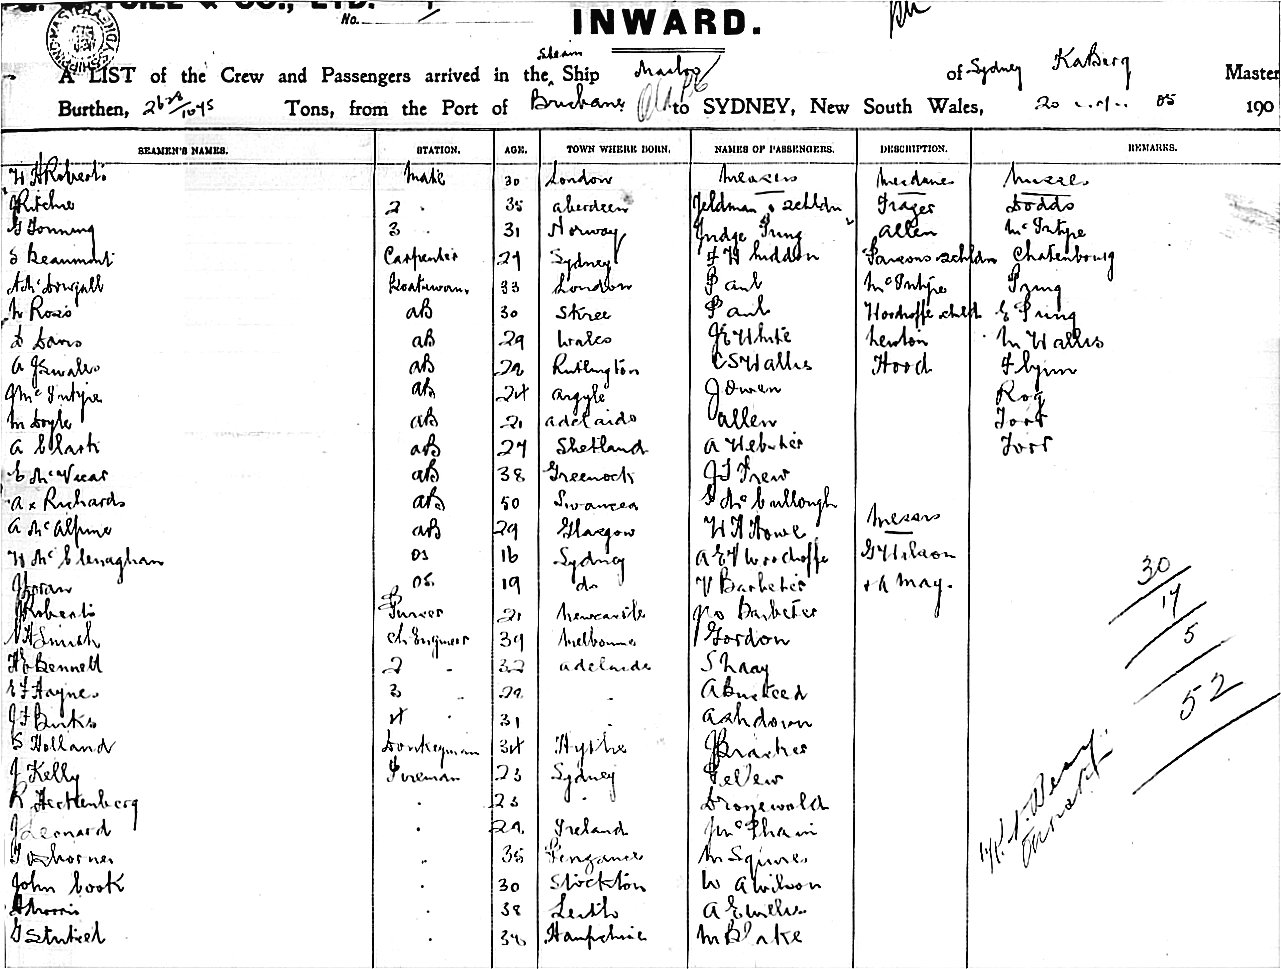 & CO., LTD.
No.
INWARD.
Steam
A LIST of the Crew and Passengers arrived in the Ship of Sydney KaBerg Master
Burthen, Tons, from the Port of Brisbane to SYDNEY, New South Wales, 20 05 190
SEAMEN'S NAMES. STATION. AGE. TOWN WHERE BORN. NAMES OF PASSENGERS. DESCRIPTION. REMARKS.
W H Roberts Mate 30 London Messrs Mesdames Misses
J Ritchie 2 " 35 Aberdeen Feldman & 2 chldn Frazer Dodds
G Tonning 3 " 31 Norway Judge Pring Allen McIntyre
S Beaumont Carpenter 29 Sydney F H Chatenbourg
A McDougall 33 London Paul McIntyre Pring
N Ross AB 30 Skree Paul Woodroffe & child E Pring
D Davis AB 29 Wales J E White Newton M Wallis
A AB C S Wallis Hood Flynn
J McIntyre AB 24 Argyle J Owen Roy
M Doyle AB 21 Adelaide Allen Torr
A Clark AB 27 Shetland A Webster Torr
E McVicar AB 38 Greenock J S Trew
A x Richards AB 50 Swansea McCullough
A McAlpine AB 29 Glasgow W H Howe Messrs
W McClenaghan OS 16 Sydney A E V Woodroffe G Wilson
J Horan OS. 19 do V Barbeter & A May.
J Roberts Purser 21 Newcastle Barbeter
Smith Ch Engineer 39 Melbourne Gordon
H E Bennett 2 " 32 Adelaide S Haay
E F Haynes 3 " 29 " A Busteed
J F Burks 4 " 31 " Ashdown
S Holland Donkeyman 34 Hythe J Brasher
J Kelly Fireman 23 Sydney PeVew
R Hecktenberg " 23 " Dronewold
J Leonard " 29 Ireland J McPhain
T Osborne " 35 Penzance M Squires
John Cook " 30 Stockton W A Wilson
A Morris " 38 Leith A E Willis
G " 36 Hampshire M Blake
30
17
5
52